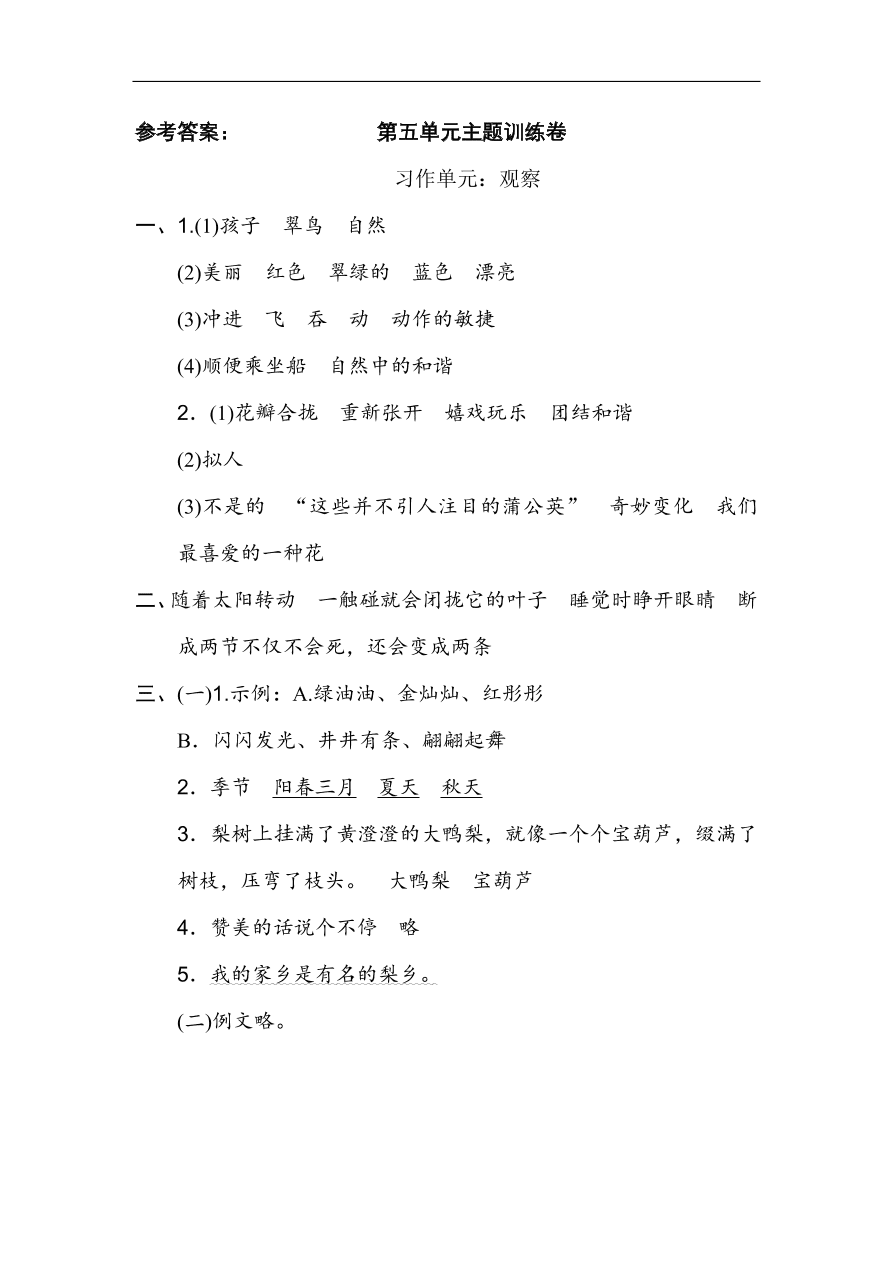 参考答案： 第五单元主题训练卷
习作单元：观察
一、1.(1)孩子 翠鸟 自然
(2)美丽 红色 翠绿的 蓝色 漂亮
(3)冲进 飞 吞 动 动作的敏捷
(4)顺便乘坐船 自然中的和谐
2．(1)花瓣合拢 重新张开 嬉戏玩乐 团结和谐
(2)拟人
(3)不是的 “这些并不引人注目的蒲公英” 奇妙变化 我们
最喜爱的一种花
二、随着太阳转动 一触碰就会闭拢它的叶子 睡觉时睁开眼睛 断
成两节不仅不会死，还会变成两条
三、(一)1.示例：A.绿油油、金灿灿、红彤彤
B．闪闪发光、井井有条、翩翩起舞
2．季节 阳春三月 夏天 秋天
3．梨树上挂满了黄澄澄的大鸭梨，就像一个个宝葫芦，缀满了
树枝，压弯了枝头。 大鸭梨 宝葫芦
4．赞美的话说个不停 略
5．我的家乡是有名的梨乡。
(二)例文略。